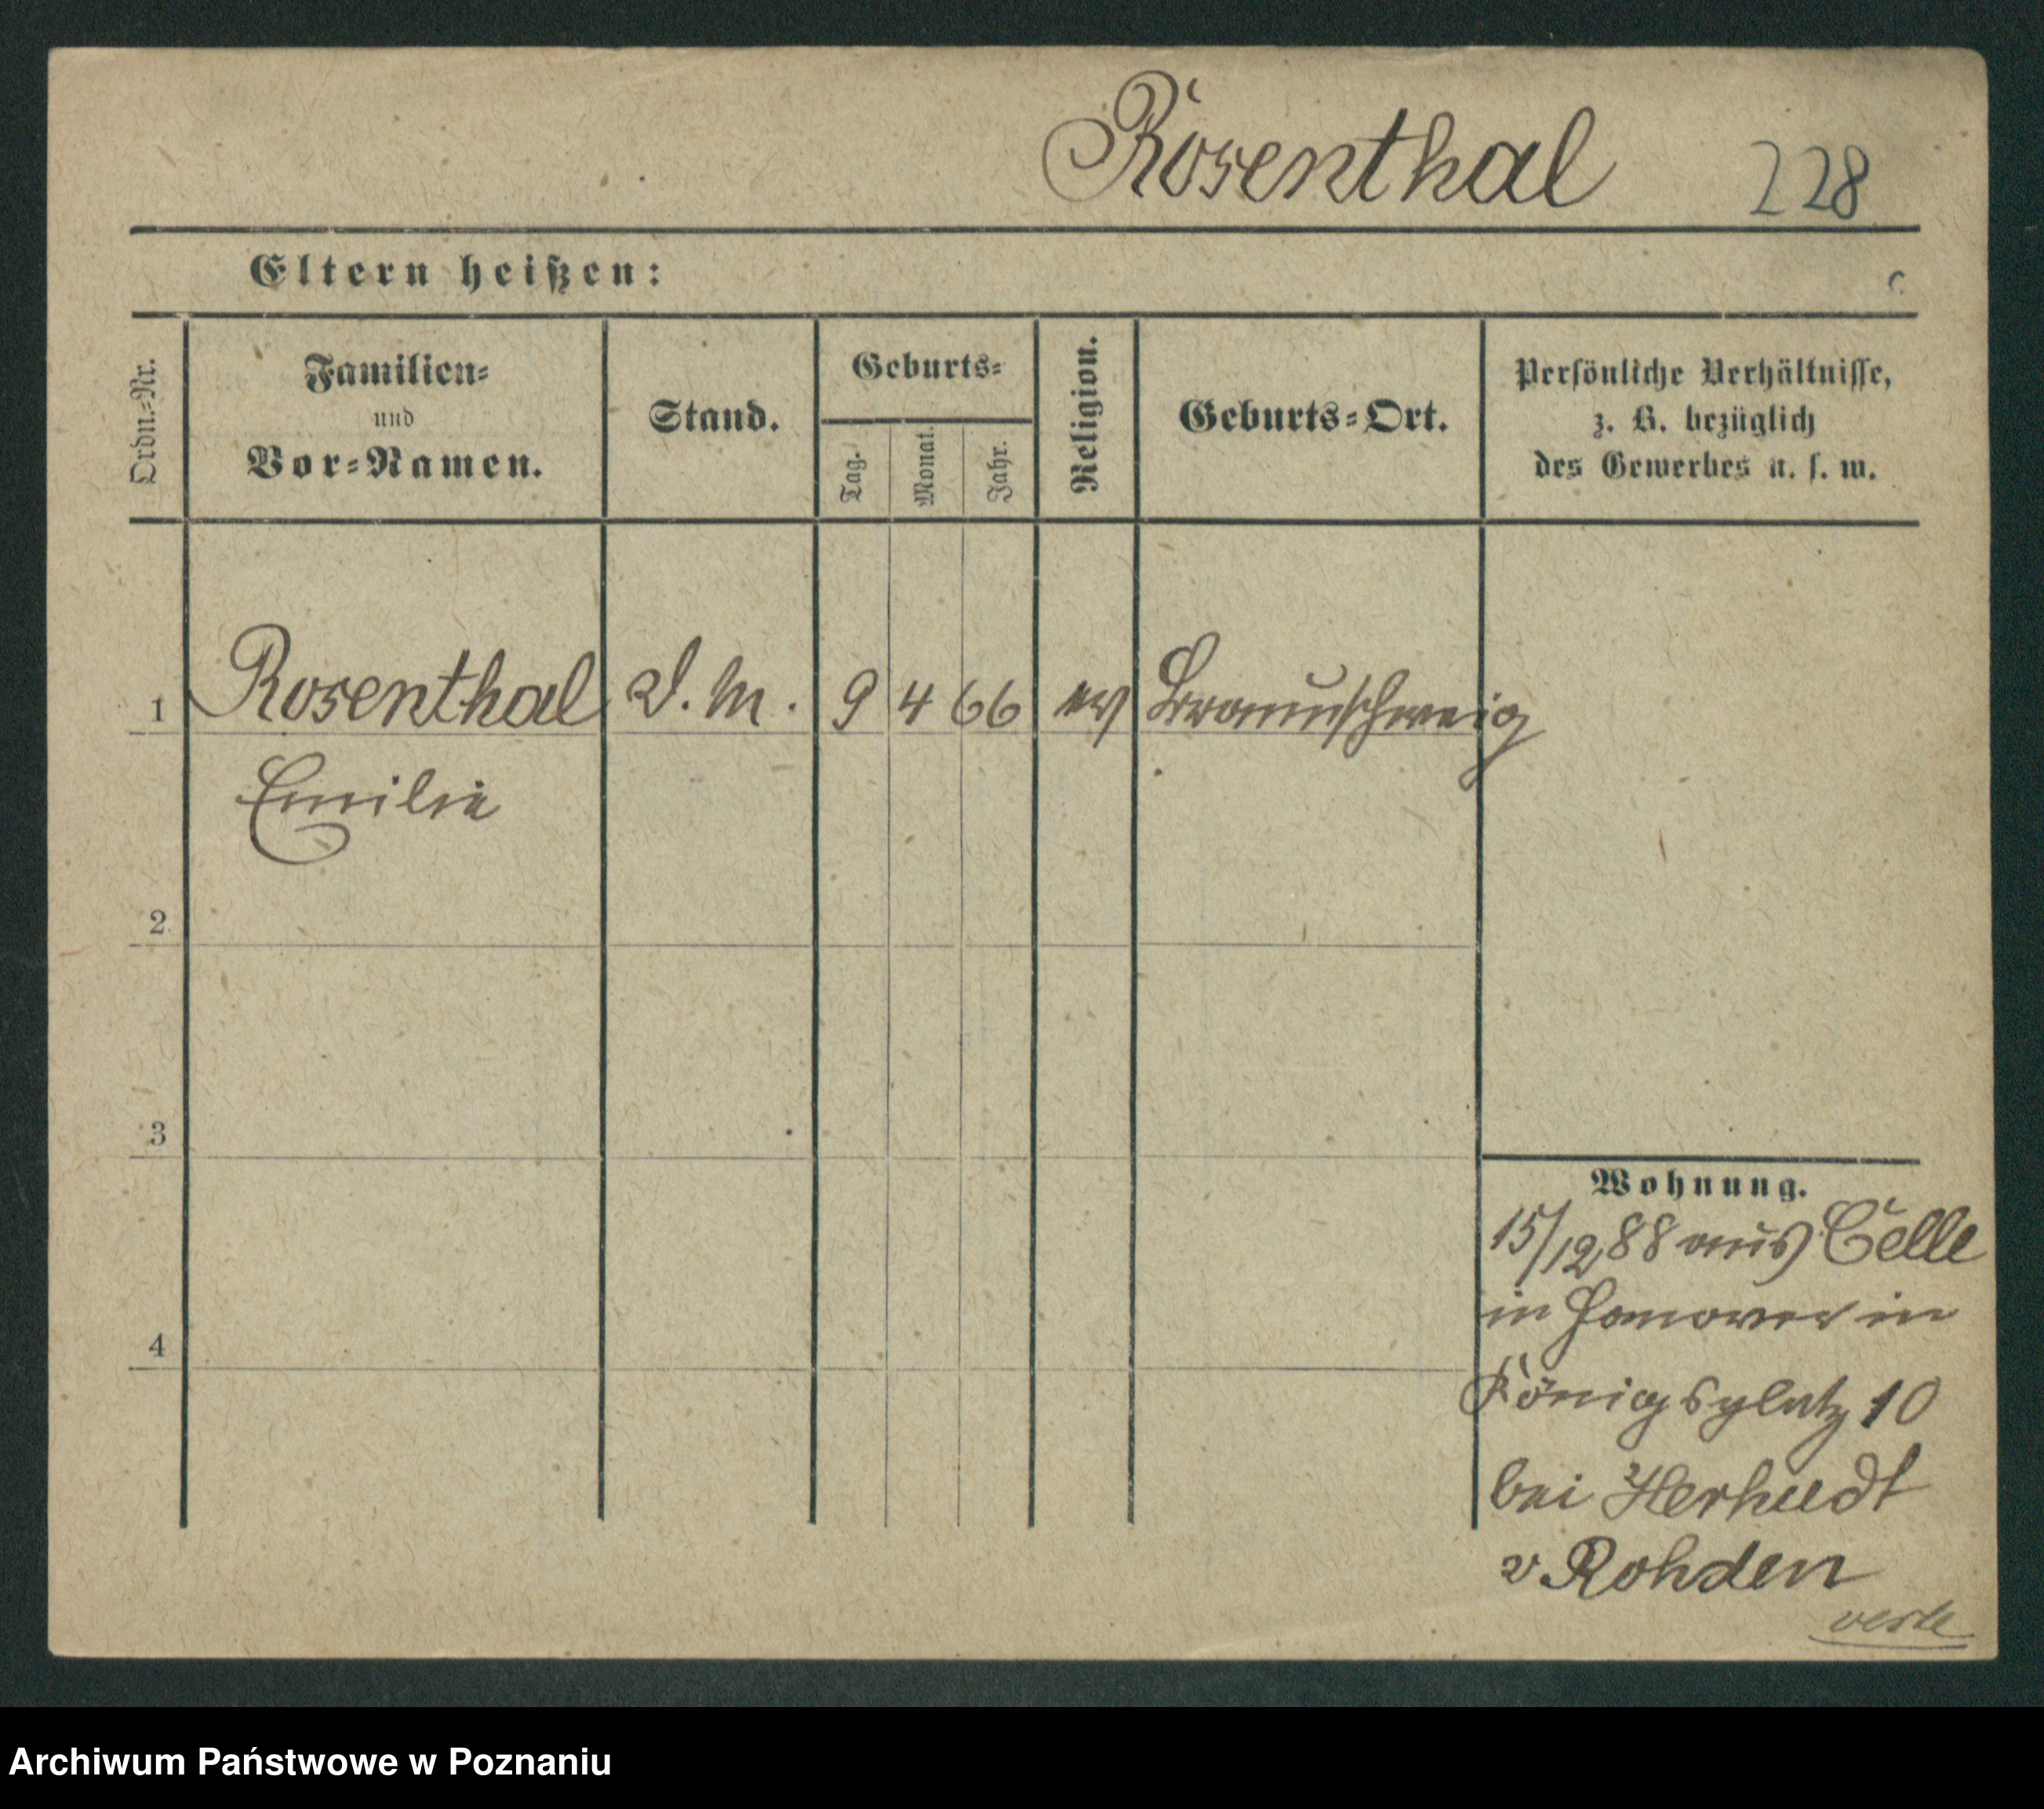 Rosenthal 228
Eltern heißen:
Ordn.-Nr.
Familien-
und
Vor-Namen.
Stand.
Geburts-
Tag.
Monat.
Jahr.
Religion.
Geburts-Ort.
Persönliche Verhältnisse,
z. B. bezüglich
des Gewerbes u. s. w.
1 Rosenthal D. M. 9 4 66 ev Braunschweig
Emilie
2
3
4
Wohnung.
15/12 88 aus Celle
in Hanover in
Königsplatz 10
bei
v Rohden
Archiwum Państwowe w Poznaniu